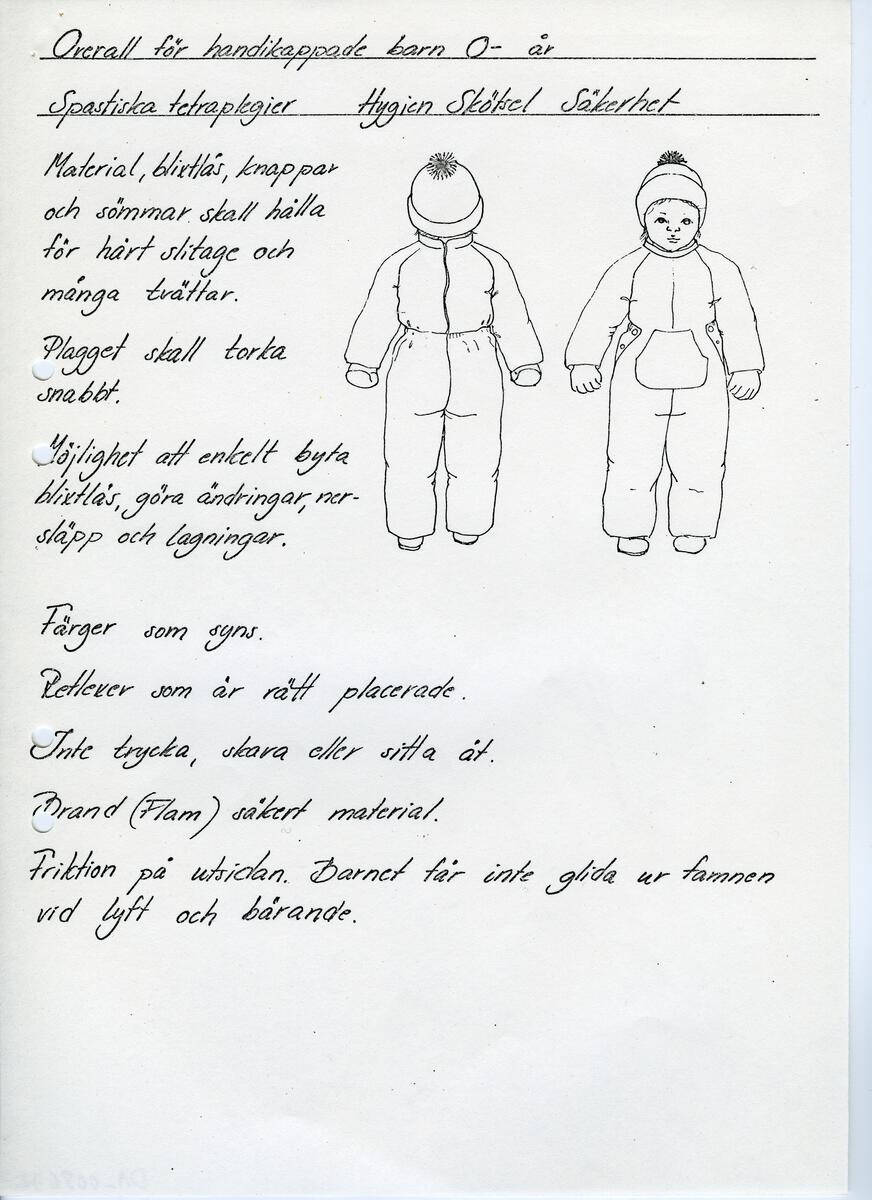 Overall för handikappade barn 0- år
Spastiska tetraplegier Hygien Skötsel Säkerhet
Material, blixtlås, knappar
och sömmar skall hålla
för hårt slitage och
många tvättar.
Plagget skall torka
snabbt.
Möjlighet att enkelt byta
blixtlås, göra ändringar, ner-
släpp och lagningar.
Färger som syns.
Reflexer som är rätt placerade.
Inte trycka, skava eller sitta åt.
Brand (Flam) säkert material.
Friktion på utsidan. Barnet får inte glida ur famnen
vid lyft och bärande.